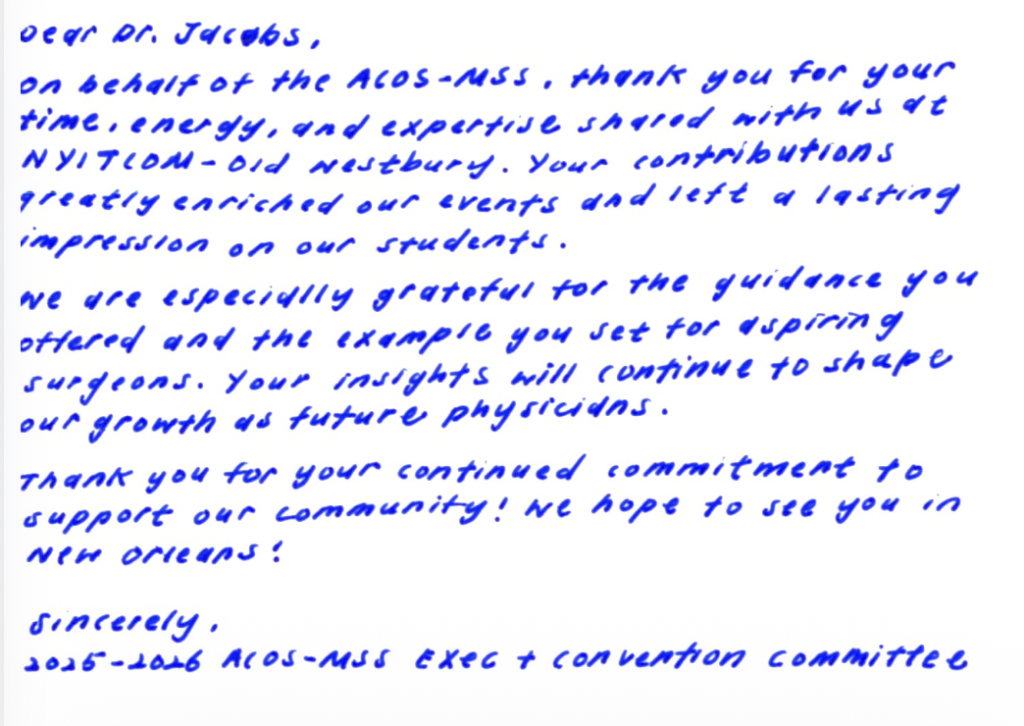 Dear Dr. Jacobs,
On behalf of the ACOS-MSS, thank you for your
time, energy, and expertise shared with us at
NYITCOM-Old Westbury. Your contributions
greatly enriched our events and left a lasting
impression on our students.
We are especially grateful for the guidance you
offered and the example you set for aspiring
surgeons. Your insights will continue to shape
our growth as future physicians.
Thank you for your continued commitment to
support our community! We hope to see you in
New Orleans!
Sincerely,
2025-2026 ACOS-MSS Exec + Convention Committee